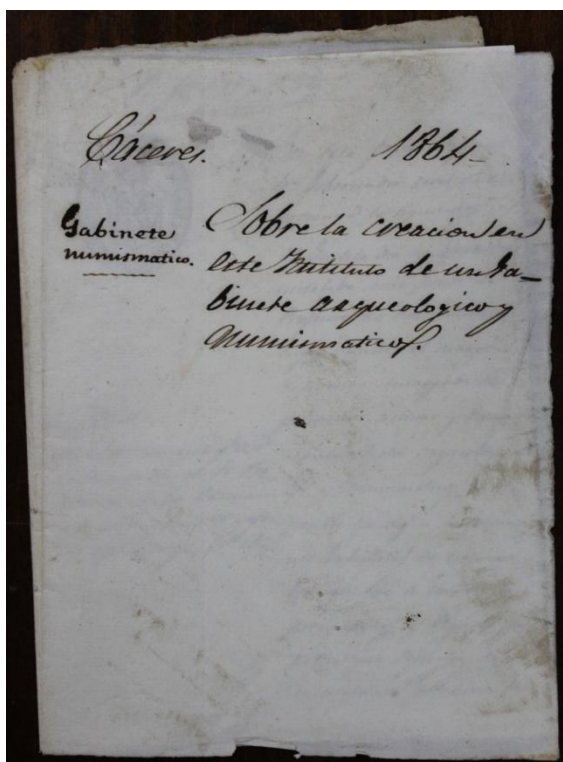 Cáceres. 1864
Gabinete
numismatico.
Sobre la creacion en
este Instituto de un Ga-
binete arqueologico y
numismatico.